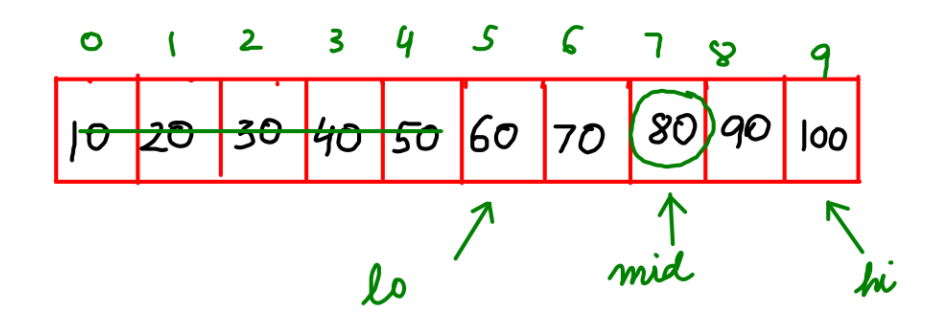 0 1 2 3 4 5 6 7 8 9
10 20 30 40 50 60 70 80 90 100
lo mid hi